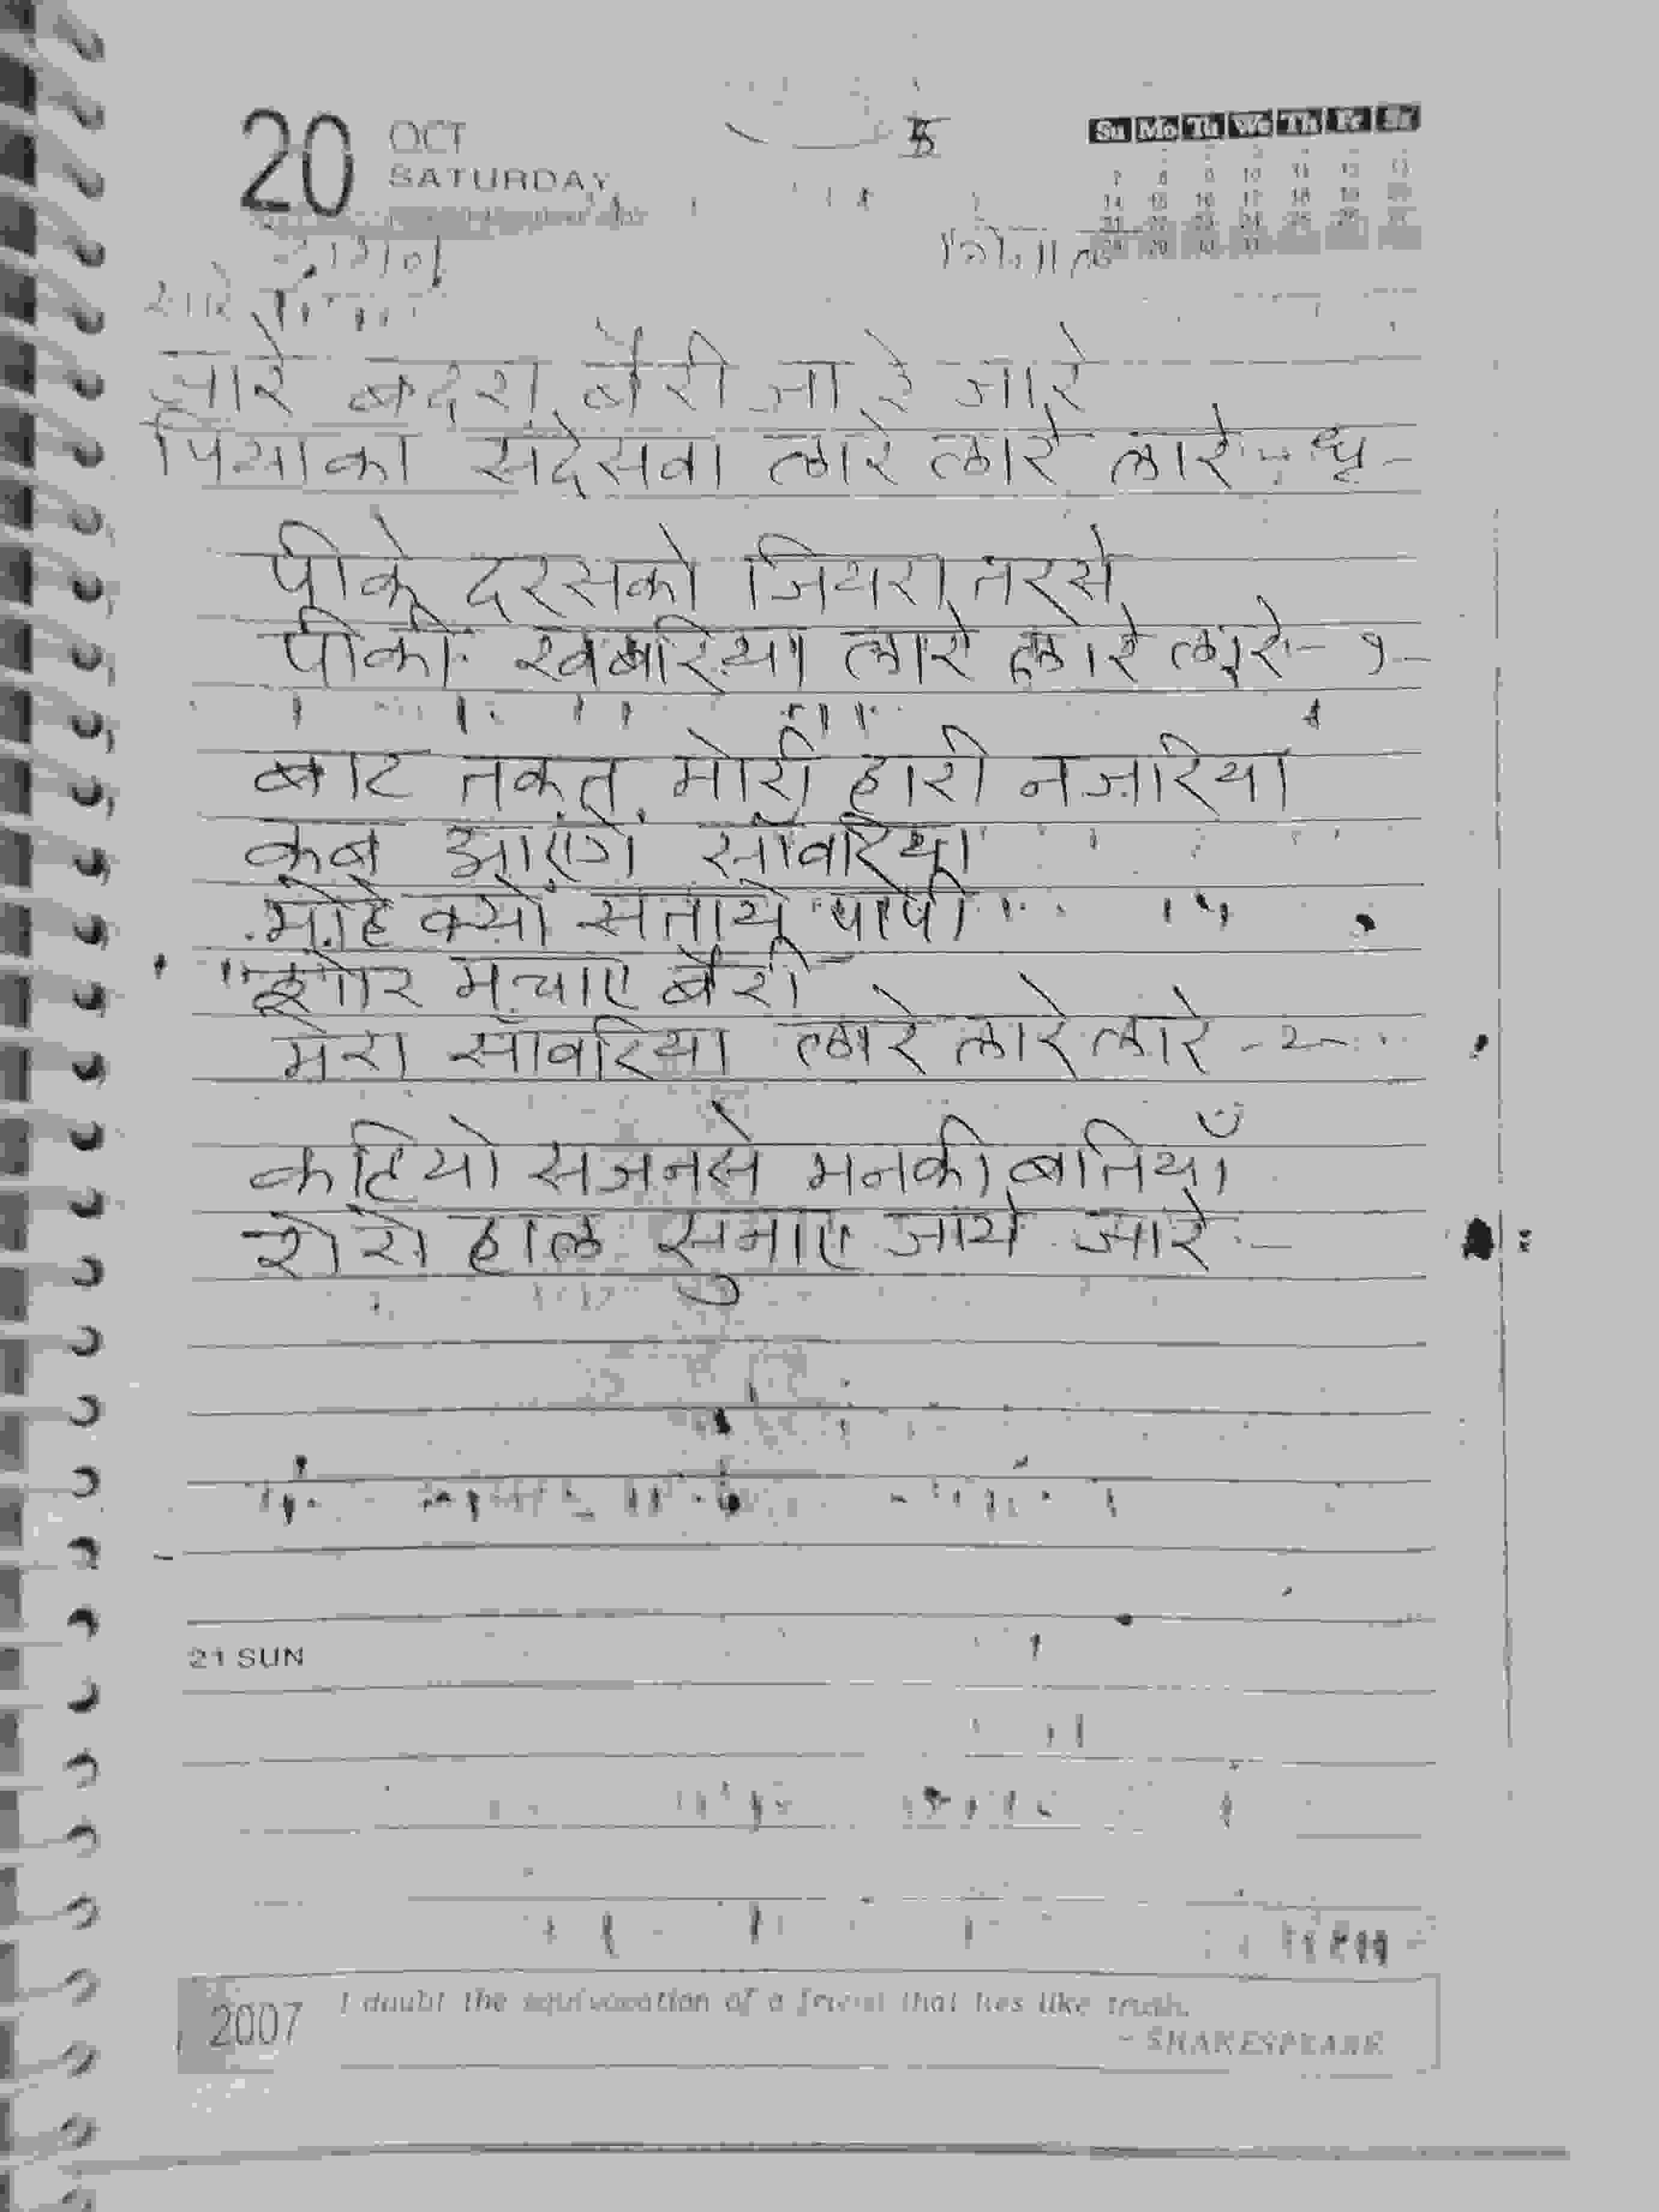 20 OCT
SATURDAY
Su Mo Tu We Th Fr Sa
7 8 9 10 11 12 13
14 15 16 17 18 19 20
21 22 23 24 25 26 27
28 29 30 31
जारे बदरा बैरी जा रे जारे
पियाका संदेसवा लारे लारे लारे -- धृ -
पीके दरसको जियरा तरसे
पीकी खबरिया लारे लारे लारे - १ -
बाट तकत मोरी हारी नज़रिया
कब आएंगे साँवरिया
मोहे क्यों सताये पापी
शोर मचाए बैरी
मेरा साँवरिया लारे लारे लारे - २ -
कहियो सजनसे मनकी बतियाँ
रो रो हाल सुनाए जाये जारे -
21 SUN
2007 I doubt the equivocation of a friend that lies like truth.
- SHAKESPEARE